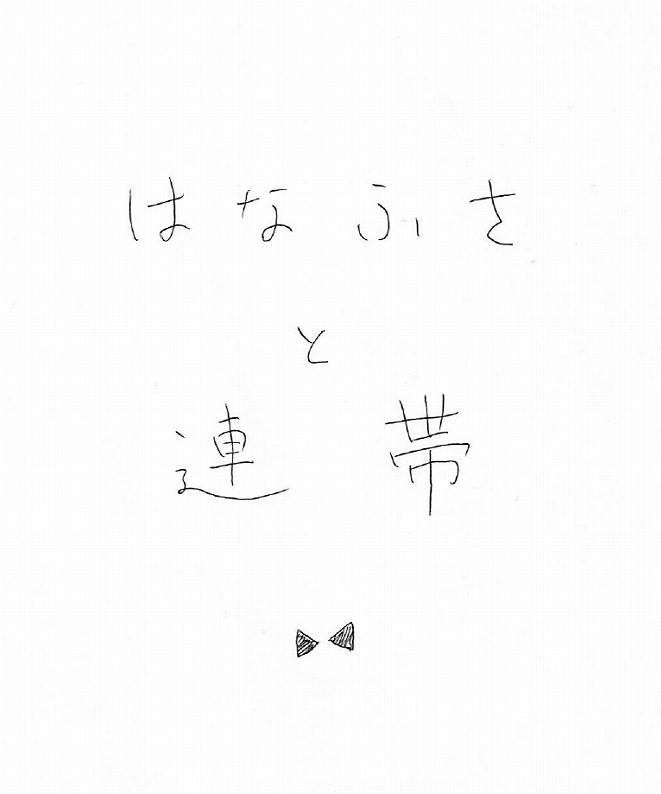 はなふさ
と
連帯